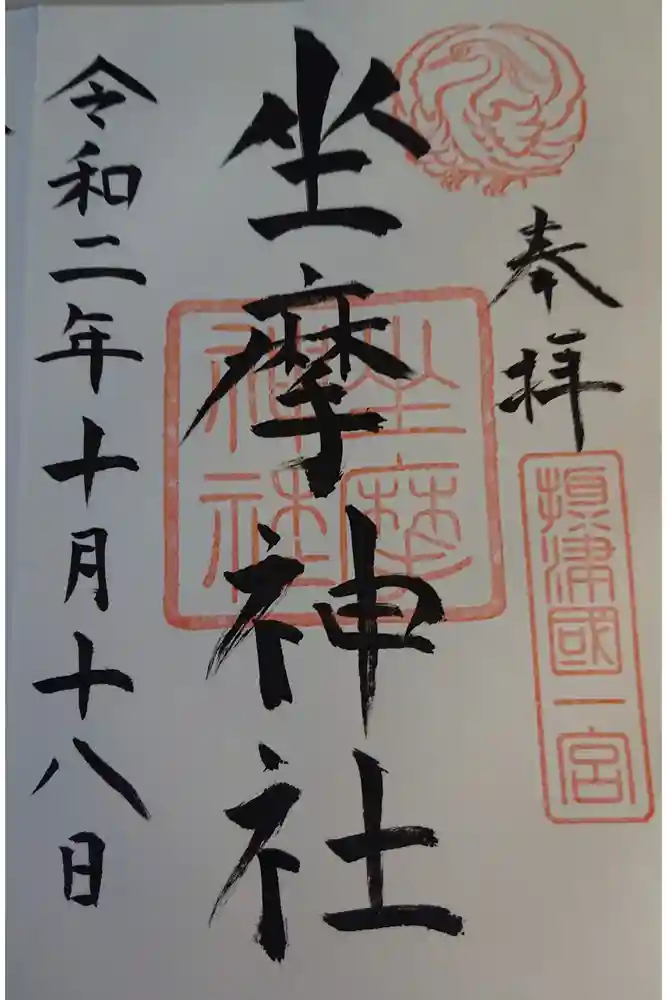 奉拝
摂津國一宮
坐摩神社
坐摩神社
令和二年十月十八日